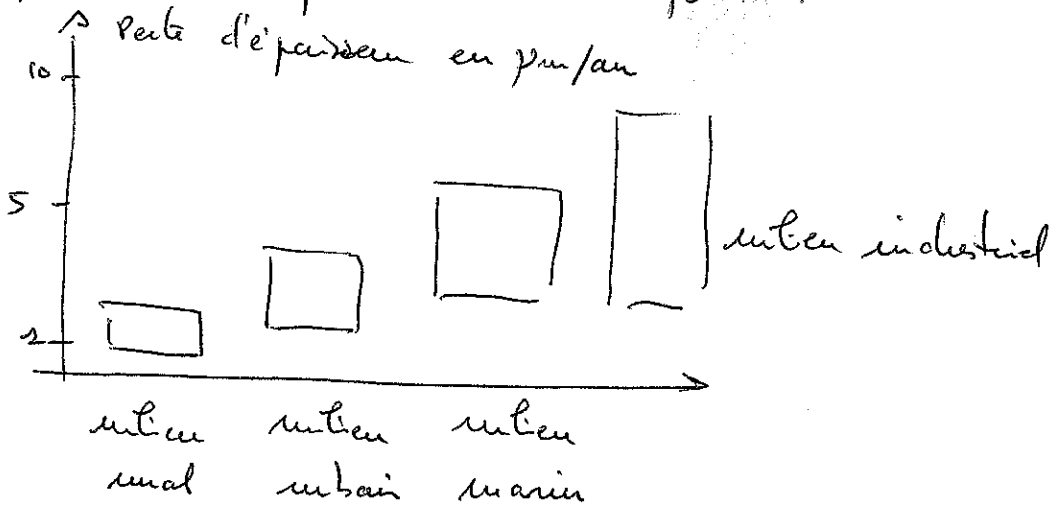 Perte d'épaisseur en μm/an
10
5
1
milieu industriel
milieu milieu milieu
rural urbain marin